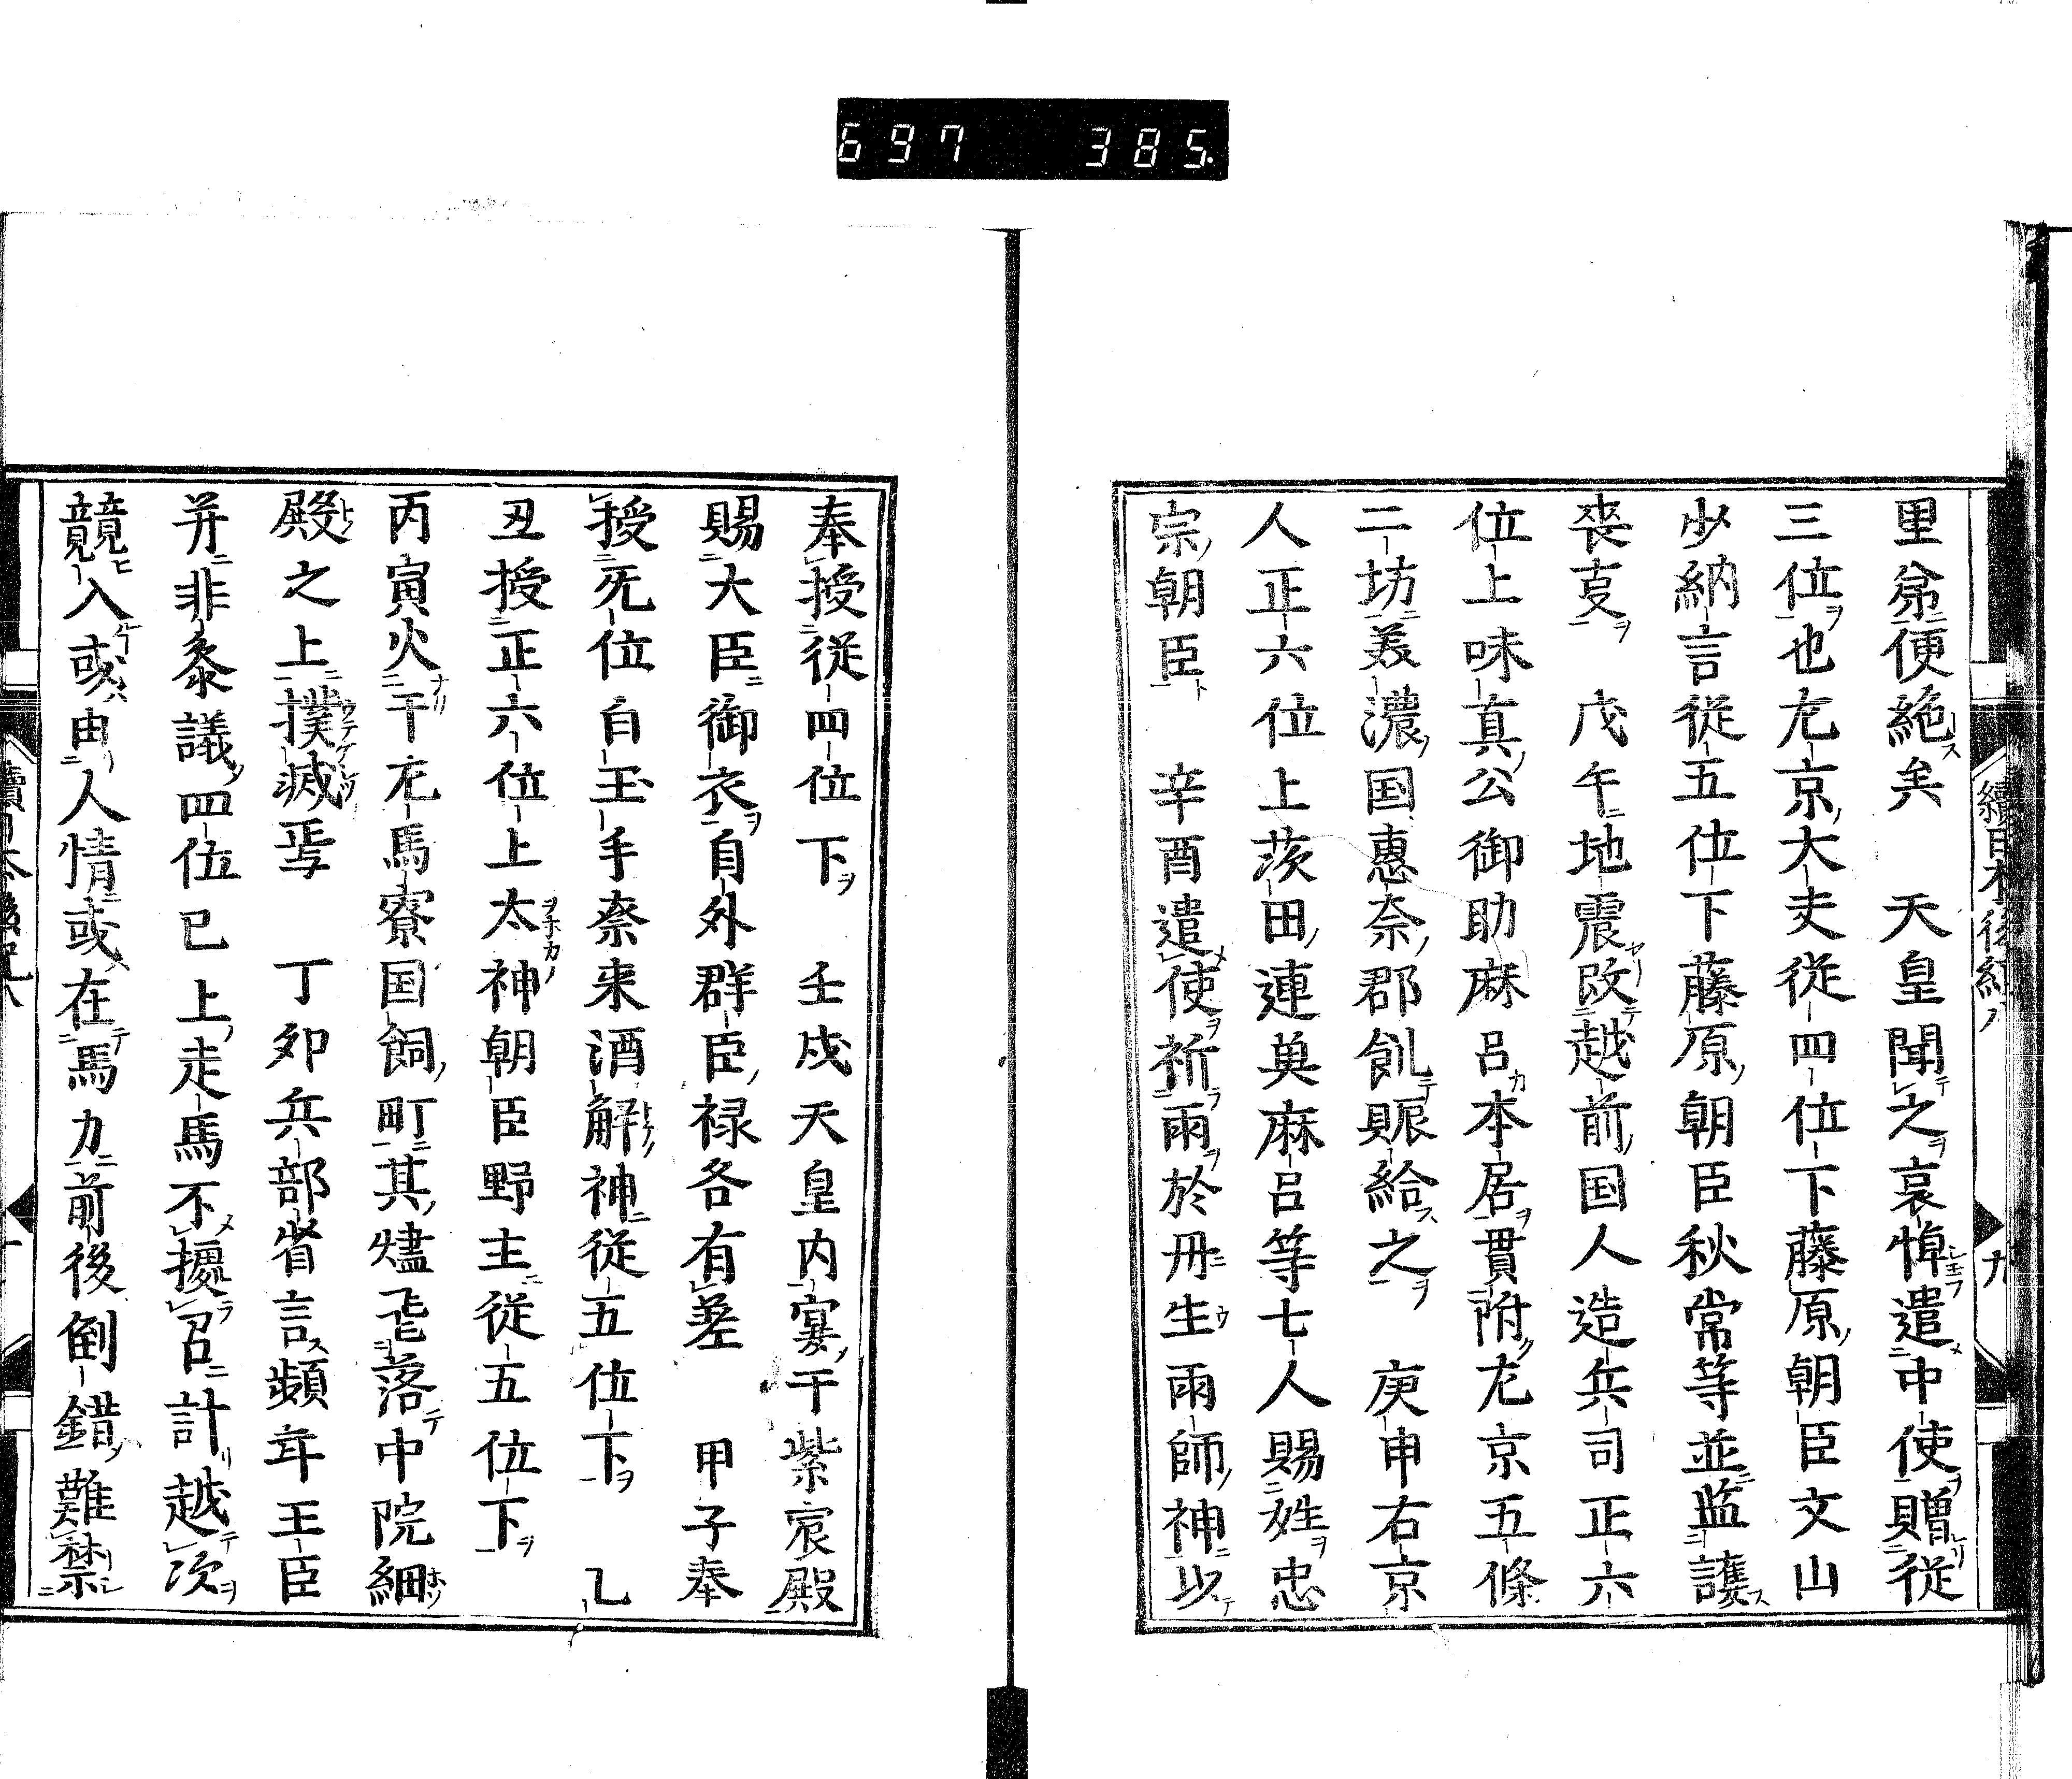 697 385
續日本後紀八 九
里第便絶矣 天皇聞之哀悼遣中使贈従
三位也左京大夫従四位下藤原朝臣文山
少納言従五位下藤原朝臣秋常等並監護
喪事 戊午地震改越前国人造兵司正六
位上味真公御助麻呂本居貫附左京五條
二坊美濃国恵奈郡飢賑給之 庚申右京
人正六位上茨田連萬麻呂等七人賜姓忠
宗朝臣 辛酉遣使祈雨於丹生雨師神以
奉授従四位下 壬戌天皇内宴于紫宸殿
賜大臣御衣自外群臣禄各有差 甲子奉
授无位白玉手奈来酒解神従五位下 乙
丑授正六位上太神朝臣野主従五位下
丙寅火于左馬寮国飼町其燼飛落中院細
殿之上撲滅焉 丁卯兵部省言頻年王臣
并非参議四位已上走馬不擾召計越次
競入或由人情或在馬力前後倒錯難禁